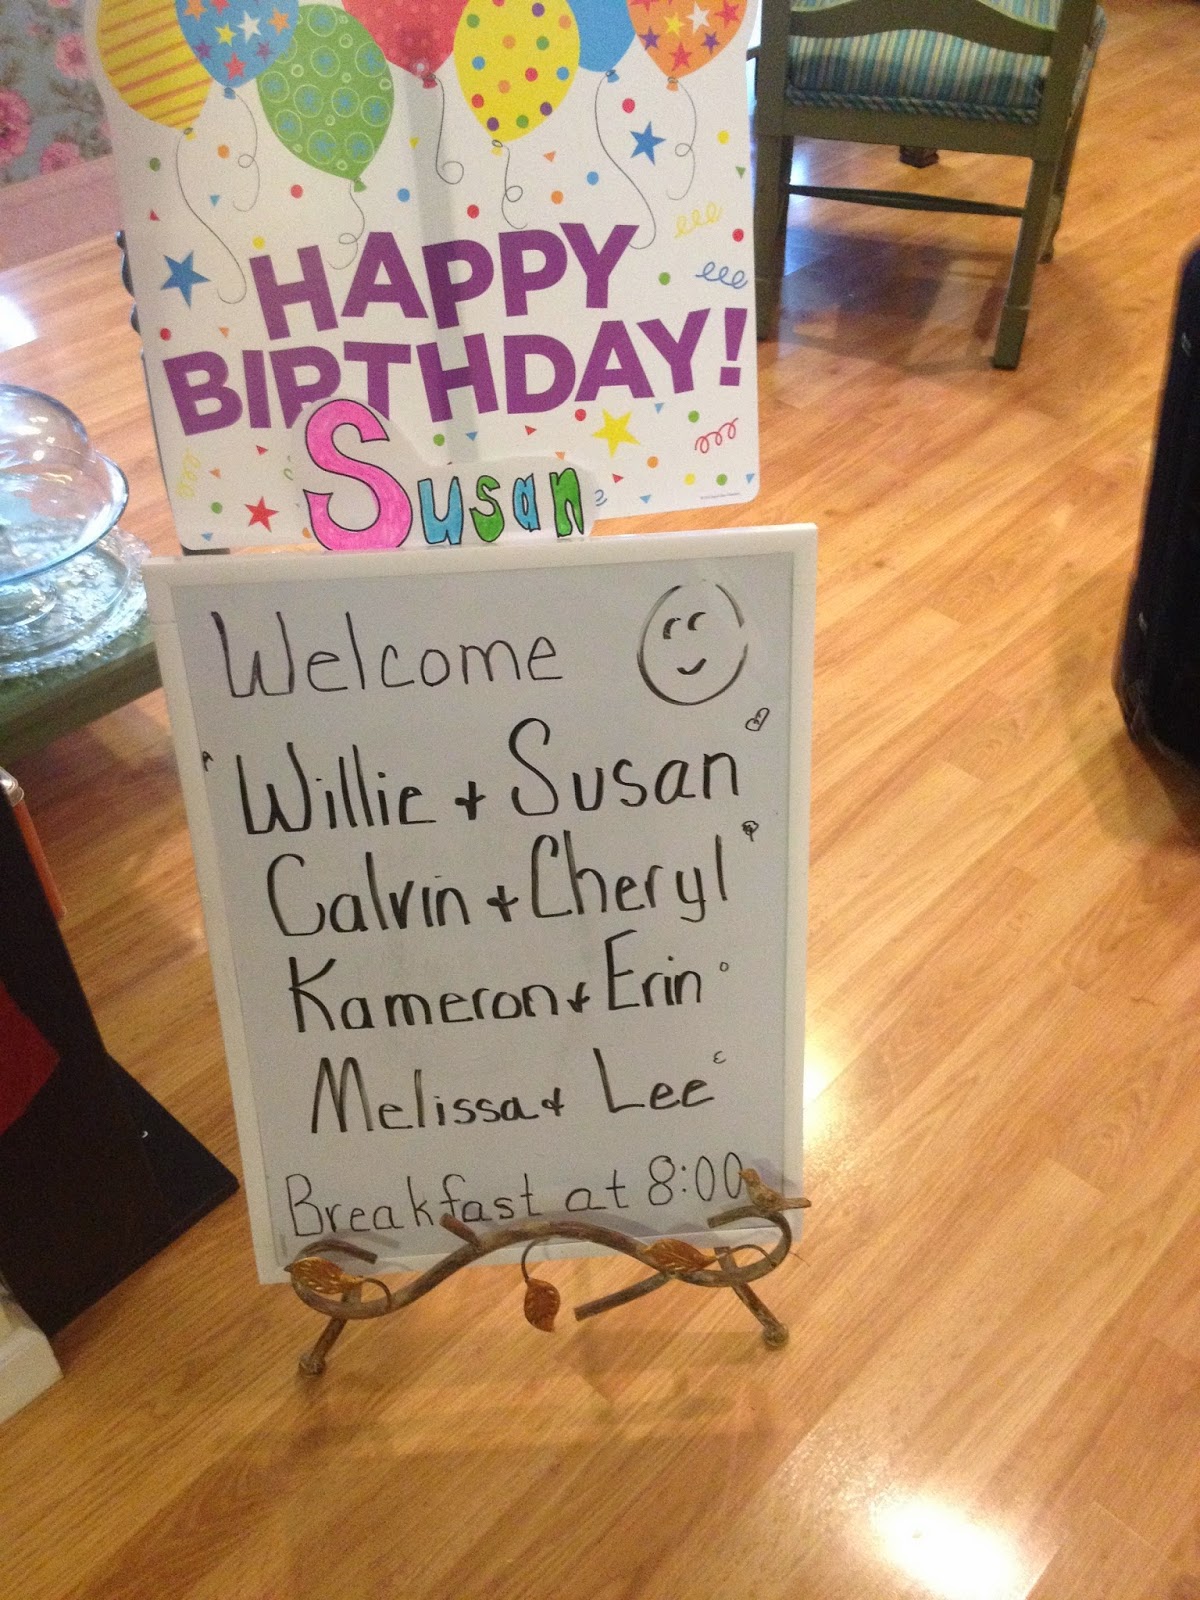 HAPPY
BIRTHDAY!
Susan
Welcome
Willie + Susan
Calvin + Cheryl
Kameron + Erin
Melissa + Lee
Breakfast at 8:00